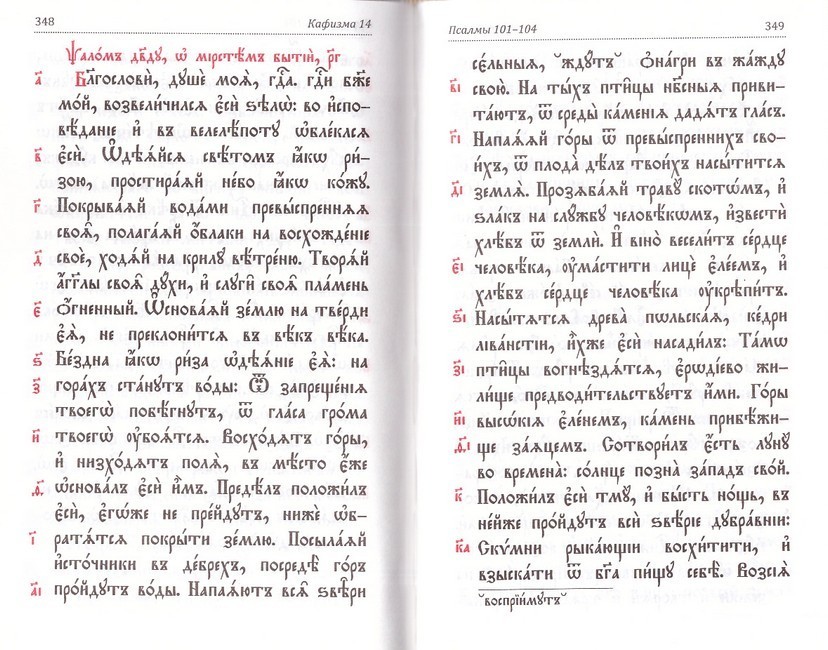 348
Кафизма 14
Ѱало́мъ дв҃ду, ѡ҆ мірстѣ́мъ бытіѝ, рг҃
а҃ Бл҃гословѝ, душѐ моѧ̀, гдⷭ҇а. гдⷭ҇и бж҃е
мо́й, возвели́чилсѧ є҆сѝ ѕѣлѡ̀: во и҆спо-
вѣ́данїе и҆ въ велелѣ́поту ѡ҆блѣ́клсѧ
в҃ є҆сѝ. Ѡ҆дѣѧ́йсѧ свѣ́томъ ꙗ҆́кѡ ри́-
зою, простира́ѧй не́бо ꙗ҆́кѡ ко́жу.
г҃ Покрыва́ѧй вода́ми превы́спреннѧѧ
своѧ̑, полага́ѧй ѻ҆́блаки на восхожде́нїе
д҃ своѐ, ходѧ́й на крилу̀ вѣ́треню. Творѧ́й
а҆́гг҃лы своѧ̑ ду́хи, и҆ слуги̑ своѧ̑ пла́мень
є҃ ѻ҆́гненный. Ѡ҆снова́ѧй зе́млю на тве́рди
є҆ѧ̀, не преклони́тсѧ въ вѣ́къ вѣ́ка.
ѕ҃ Бе́здна ꙗ҆́кѡ ри́за ѡ҆дѣѧ́нїе є҆ѧ̀: на
з҃ гора́хъ ста́нутъ во́ды: Ѿ запреще́нїѧ
твоегѡ̀ побѣ́гнутъ, ѿ гла́са гро́ма
и҃ твоегѡ̀ ᲂу҆боѧ́тсѧ. Восхо́дѧтъ го́ры,
и҆ низхо́дѧтъ полѧ̀, въ мѣ́сто є҆́же
ѳ҃ ѡ҆снова́лъ є҆сѝ и҆̀мъ. Предѣ́лъ положи́лъ
є҆сѝ, є҆гѡ́же не пре́йдутъ, нижѐ ѡ҆б-
і҃ ратѧ́тсѧ покры́ти зе́млю. Посыла́ѧй
и҆сто́чники въ де́брехъ, посредѣ̀ го́ръ
а҃і про́йдутъ во́ды. Напаѧ́ютъ всѧ̑ ѕвѣ̑ри
Псалмы 101–104
349
се́льныѧ, ˮждутъˮ ѻ҆на́гри въ жа́жду
в҃і свою̀. На ты́хъ пти̑цы нбⷭ҇ныѧ привита́-
та́ютъ, ѿ среды̀ ка́менїѧ дадѧ́тъ гла́съ.
г҃і Напаѧ́ѧй го́ры ѿ превы́спреннихъ свои́хъ
и́хъ, ѿ плода̀ дѣ́лъ твои́хъ насы́титсѧ
д҃і землѧ̀. Прозѧба́ѧй траву̀ скотѡ́мъ, и҆
ѕла́къ на слу́жбу человѣ́кѡмъ, и҆звестѝ
хлѣ́бъ ѿ землѝ. И҆ віно̀ весели́тъ се́рдце
є҃і человѣ́ка, ᲂу҆ма́стити лицѐ є҆ле́емъ, и҆
хлѣ́бъ се́рдце человѣ́ка ᲂу҆крѣпи́тъ.
ѕ҃і Насы́тѧтсѧ древа̀ польска́ѧ, ке́дри
ліва́нстіи, и҆̀хже є҆сѝ насади́лъ: Та́мѡ
з҃і пти̑цы вогнѣздѧ́тсѧ, є҆рѡді́ево жи-
ли́ще предводи́тельствуетъ и҆́ми. Го́ры
и҃і высѡ́кїѧ є҆ле́немъ, ка́мень прибѣ́жи-
ѳ҃і ще за́ѧцемъ. Сотвори́лъ є҆́сть луну̀
во времена̀: со́лнце позна̀ за́падъ сво́й.
к҃ Положи́лъ є҆сѝ тму̀, и҆ бы́сть но́щь, въ
не́йже про́йдутъ всѝ ѕвѣ́рїе дубра́внїи:
к҃а Скѵ́мни рыка́ющіи восхи́тити, и҆
взыска́ти ѿ бг҃а пи́щу себѣ̀. Возсїѧ̀
ˮвоспрїи́мутъˮ